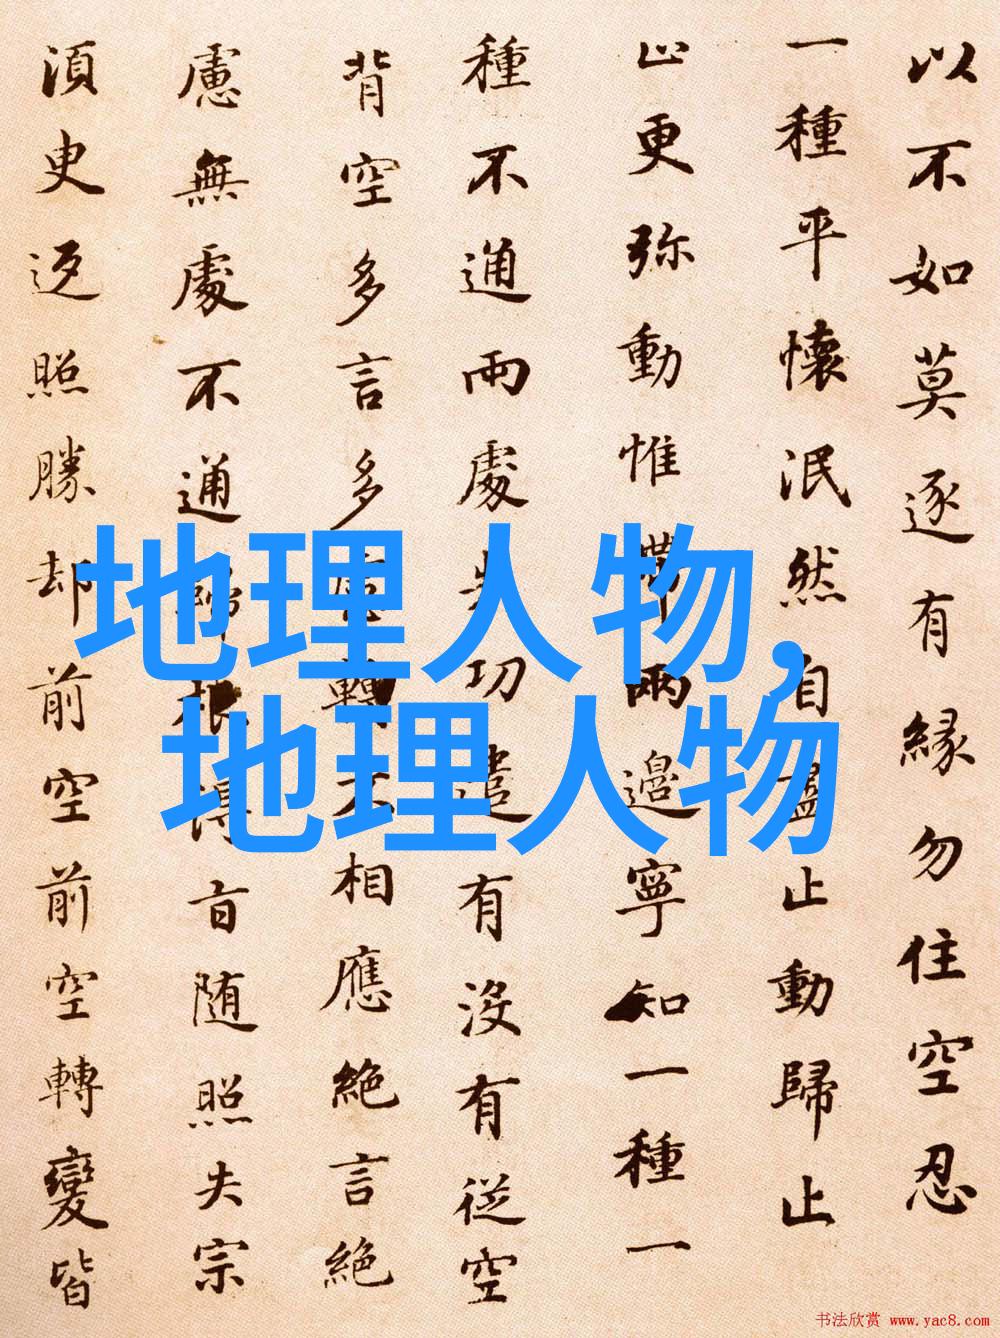 地理人物,
地理人物
以不如莫逐有緣勿住空忍
一種平懷泯然自盡止動歸止
止更弥動惟滯兩邊寧知一種一
種不通兩處失功遣有沒有従空
背空多言多慮轉不相應絶言絶
慮無處不通歸根得旨随照失宗
須臾返照勝却前空前空轉變皆
书法欣赏 www.yac8.com